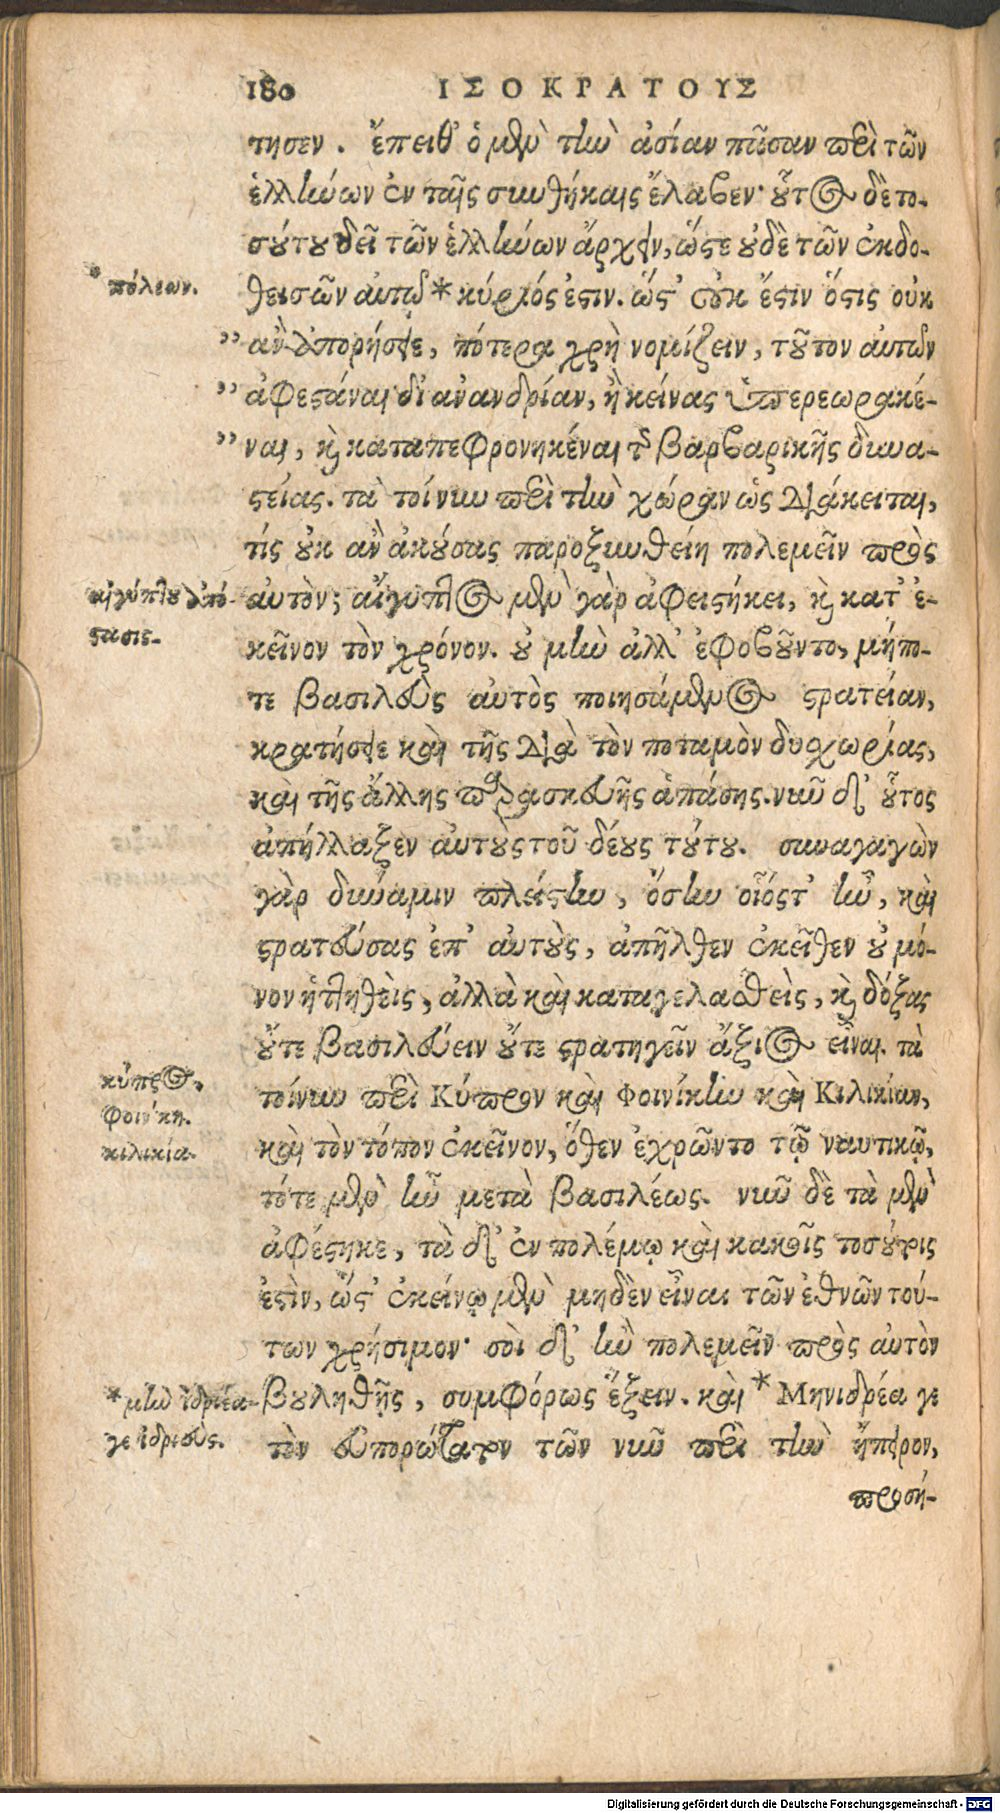 180 ΙΣΟΚΡΑΤΟΥΣ
τησεν. ἔπειθ' ὁ μὲν τὴν ἀσίαν πᾶσαν παρὰ τῶν
ἑλλήνων ἐν ταῖς συνθήκαις ἔλαβεν· οὗτος δὲ το-
σούτου δεῖ τῶν ἑλλήνων ἄρχειν, ὥστε οὐδὲ τῶν ἐκδο-
* πόλεων.
θεισῶν αὐτῷ * κύριός ἐστιν. ὥστ' οὐκ ἔστιν ὅστις οὐκ
" ἂν ἀπορήσειε, πότερα χρὴ νομίζειν, τοῦτον αὐτῶν
" ἀφεστάναι δι' ἀνανδρίαν, ἢ κείνας ὑπερεωρακέ-
" ναι, καὶ καταπεφρονηκέναι τῆς βαρβαρικῆς δυνα-
στείας. τὰ τοίνυν περὶ τὴν χώραν ὡς διάκειται,
τίς οὐκ ἂν ἀκούσας παροξυνθείη πολεμεῖν πρὸς
αἰγύπτου ἀπό-
στασις.
αὐτὸν; αἴγυπτος μὲν γὰρ ἀφειστήκει, καὶ κατ' ἐ-
κεῖνον τὸν χρόνον. οὐ μὴν ἀλλ' ἐφοβοῦντο, μήπο-
τε βασιλεὺς αὐτὸς ποιησάμενος στρατείαν,
κρατήσειε καὶ τῆς διὰ τὸν ποταμὸν δυσχωρίας,
καὶ τῆς ἄλλης παρασκευῆς ἁπάσης. νῦν δ' οὗτος
ἀπήλλαξεν αὐτοὺς τοῦ δέους τούτου. συναγαγὼν
γὰρ δύναμιν πλείστην, ὅσην οἷός τ' ἦν, καὶ
στρατεύσας ἐπ' αὐτοὺς, ἀπῆλθεν ἐκεῖθεν οὐ μό-
νον ἡττηθεὶς, ἀλλὰ καὶ καταγελασθεὶς, καὶ δόξας
οὔτε βασιλεύειν οὔτε στρατηγεῖν ἄξιος εἶναι. τὰ
κύπρος,
φοινίκη.
κιλικία.
τοίνυν περὶ Κύπρον καὶ Φοινίκην καὶ Κιλικίαν,
καὶ τὸν τόπον ἐκεῖνον, ὅθεν ἐχρῶντο τῷ ναυτικῷ,
τότε μὲν ἦν μετὰ βασιλέως. νῦν δὲ τὰ μὲν
ἀφέστηκε, τὰ δ' ἐν πολέμῳ καὶ κακοῖς τοσούτοις
ἐστὶν, ὥστ' ἐκείνῳ μὲν μηδὲν εἶναι τῶν ἐθνῶν τού-
των χρήσιμον· σοὶ δ' ἢν πολεμεῖν πρὸς αὐτὸν
* μὴν ἰδριέα
γε ἰδριεὺς.
βουληθῇς, συμφόρως ἕξειν. καὶ * Μηνιδρέα γε
τὸν εὐπορώτατον τῶν νῦν περὶ τὴν ἤπειρον,
προσή-
Digitalisierung gefördert durch die Deutsche Forschungsgemeinschaft - DFG